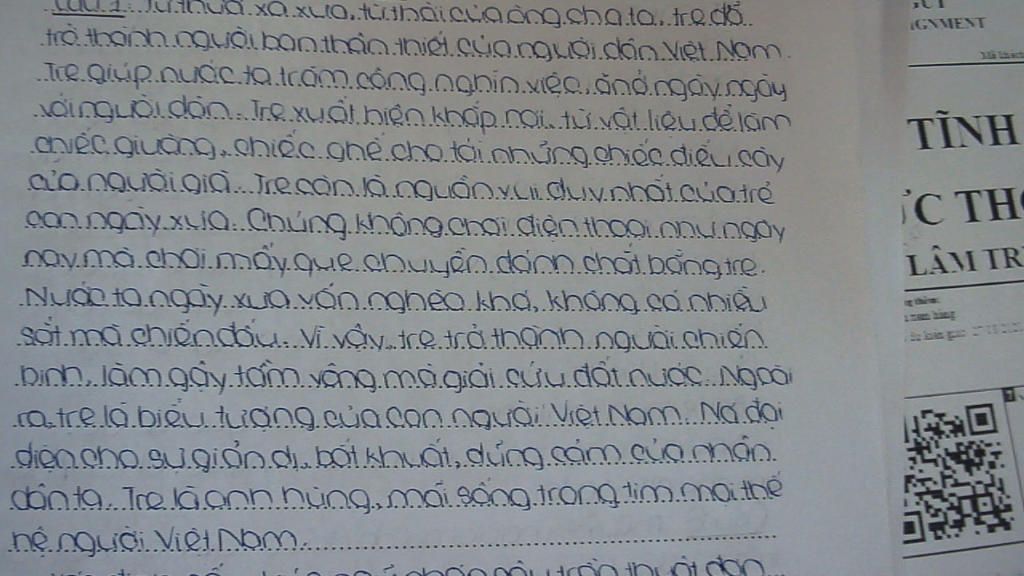 Câu 1. Từ thuở xa xưa, từ thời của ông cha ta, tre đã
trở thành người bạn thân thiết của người dân Việt Nam.
Tre giúp nước ta trăm công nghìn việc, ăn ở ngày ngày
với người dân. Tre xuất hiện khắp nơi, từ vật liệu để làm
chiếc giường, chiếc ghế cho tới những chiếc điếu cày
của người già. Tre còn là nguồn vui duy nhất của trẻ
con ngày xưa. Chúng không chơi điện thoại như ngày
nay mà chơi mấy que chuyền đánh chắt bằng tre.
Nước ta ngày xưa vốn nghèo khó, không có nhiều
sắt mà chiến đấu. Vì vậy, tre trở thành người chiến
binh, làm gậy tầm vông mà giải cứu đất nước. Ngoài
ra, tre là biểu tượng của con người Việt Nam. Nó đại
diện cho sự giản dị, bất khuất, dũng cảm của nhân
dân ta. Tre là anh hùng, mãi sống trong tim mọi thế
hệ người Việt Nam.
IGNMENT
TĨNH
C TH
LÂM TR